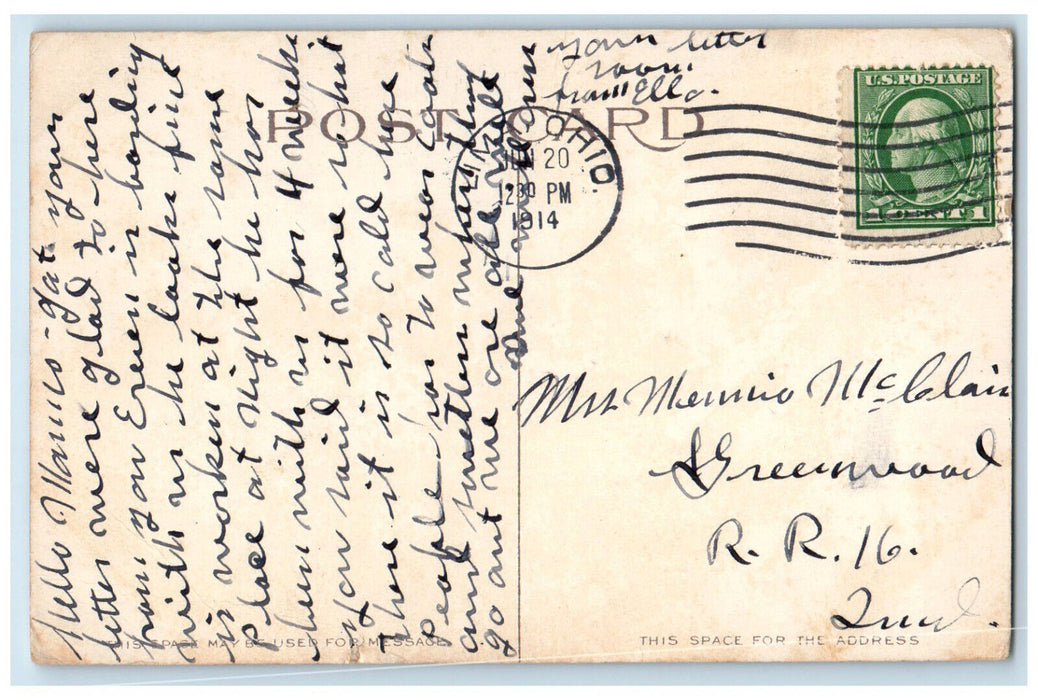 your letter
room
from Ella.
POST CARD
U.S. POSTAGE
1 CENT 1
OHIO
JUN 20
12 30 PM
1914
Hello Mamo - got your
letter were glad to here
from you Ernen is boring
with us he looks fine
is worken at the same
place at night he has
been with us for 4 weeks
you said it were so hot
there it is so cold here
people has to wear coats
and
go out we are all well
Mrs Mennio McClain
Greenwood
R. R. 16.
Ind.
THIS SPACE MAY BE USED FOR MESSAGE
THIS SPACE FOR THE ADDRESS